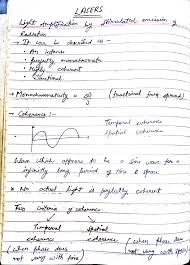 LASERS
Light Amplification by Stimulated emission of
Radiation
→ It can be described as -
• An intense
• perfectly monochromatic
• Highly coherent
• Directional
→ Monochromaticity = (fractional freq spread)
→ Coherence :-
Temporal coherence
Spatial coherence
Wave which appears to be a sine wave for a
infinitely long period of time & space
* No actual light is perfectly coherent
Two criteria of coherence
Temporal Spatial
coherence coherence (when phase does
(when phase does not vary with space)
not vary with time)